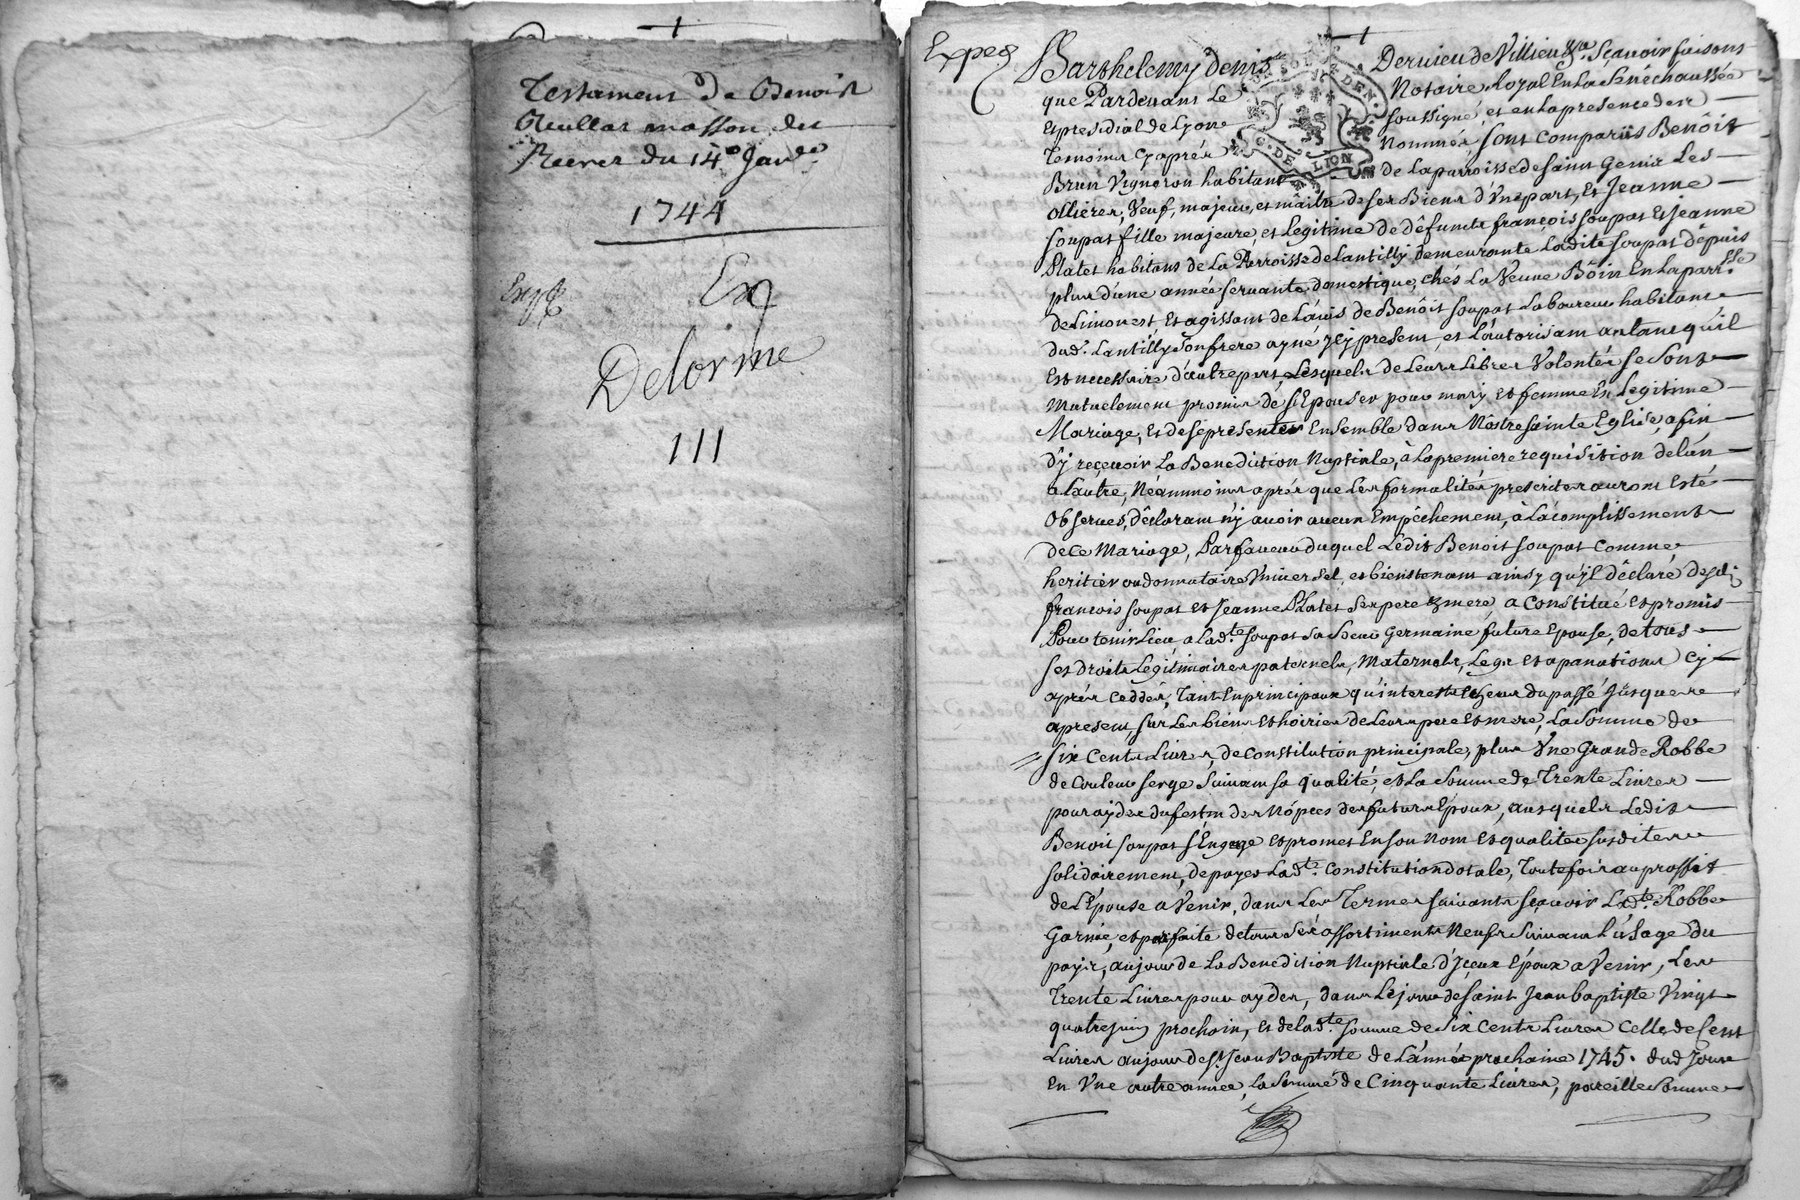 Testament de Benoist
masson du
du 14e Janv.er
1744
Exp.
Ex
Delorme
111
Exped
Barthelemy denis Deruieu de Villieu &a. Sçauoir faisons
que Pardeuant Le Notaire Royal En La Sénéchaussée
et presidial de Lyon soussigné, et en la presence des
Temoins Cyaprés Nommés sont Comparüs Benôit
Brun Vigneron habitant de la parroisse de saint Genis Les
ollieres, Veuf, majeur, et maître de ses Biens d'Vne part, Et Jeanne
soupat fille majeure, et Legitime de défuncts françois soupat Et Jeanne
Platet habitans de La Parroisse de Lantilly demeurante Ladite soupat dépuis
plus d'une année servante domestique, chés La Veuue Bôin En La parr.sse
de Limonest, Et agissant de L'auis de Benôit soupat Laboureur habitant
dud. Lantilly son frere ayné Jcy present, et L'autorisant autant qu'il
Est necessaire d'autre part, Lesquels de Leurs Libres Volontés se sont
Mutuelement promis de s'Epouser pour mary et femme En Legitime
Mariage, Et de se présenter Ensemble dans Nôstre sainte Eglise, afin
d'y reçeuoir La Benediction Nuptiale, à La premiere requisition de L'un
a L'autre, Néanmoins aprés que Les formalités prescrites auront Esté
Observées, déclarant n'y auoir aucun Empêchement, a L'acomplissement
de ce Mariage, Par faueur duquel Ledit Benoit soupat Comme
heritier ou donnataire Vniversel, et bienstenant ainsy qu'il déclaré desd.
francois soupat et Jeanne Platet ses pere & mere, a Constitué et promis
Pour tenir Lieu a Lad.te soupat sa soeur Germaine future Epouse, de tous
ses Droits Legitimaires paternels, Maternels, Legs et apanations Cy
aprés Ceddés, Tant En principaux qu'interests Echeus du passé Jusques
a present, sur Les biens Et hoiries de Leurs pere et mere, La Somme de
six Cents Liures, de Constitution principale, plus Vne Grande Robbe
de Couleur serge suiuant sa qualité, et La Somme de Trente Liures
pour ayder du festin des Nópces des futurs Epoux, ausquels Ledit
Benoit soupat s'Engage et promet En son Nom Et qualités susdites
solidairement, de payer Lad.te. Constitution dotale, Toutefois au proffit
de L'Epouse a Venir, dans Les Termes suiuants sçauoir Lad.te Robbe
Garnie, et parfaite de tous ses assortiments Neufs suiuant L'usage du
payis, au jour de La Benediction Nuptiale d'Jceux Epoux a Venir, Les
Trente Liures pour ayder, dans Le jour de saint Jean baptiste Vingt
quatre juin prochain, et de lad.te somme de six Cents Liures Celle de Cent
Liures au jour de St. Jean Baptiste de L'année prochaine 1745. dud. Jour
En Vne autre année, la somme de Cinquante Liures, pareille somme